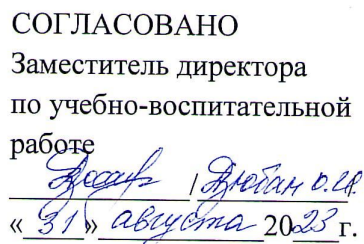 СОГЛАСОВАНО
Заместитель директора
по учебно-воспитательной
работе
/ Дюбан О.И.
« 31 » августа 2023 г.